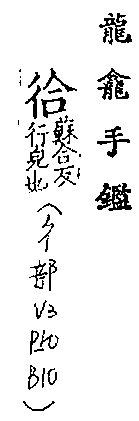 龍龕手鑑
㣛
蘇合反
行皃也
(彳部 V3 P50 B10)